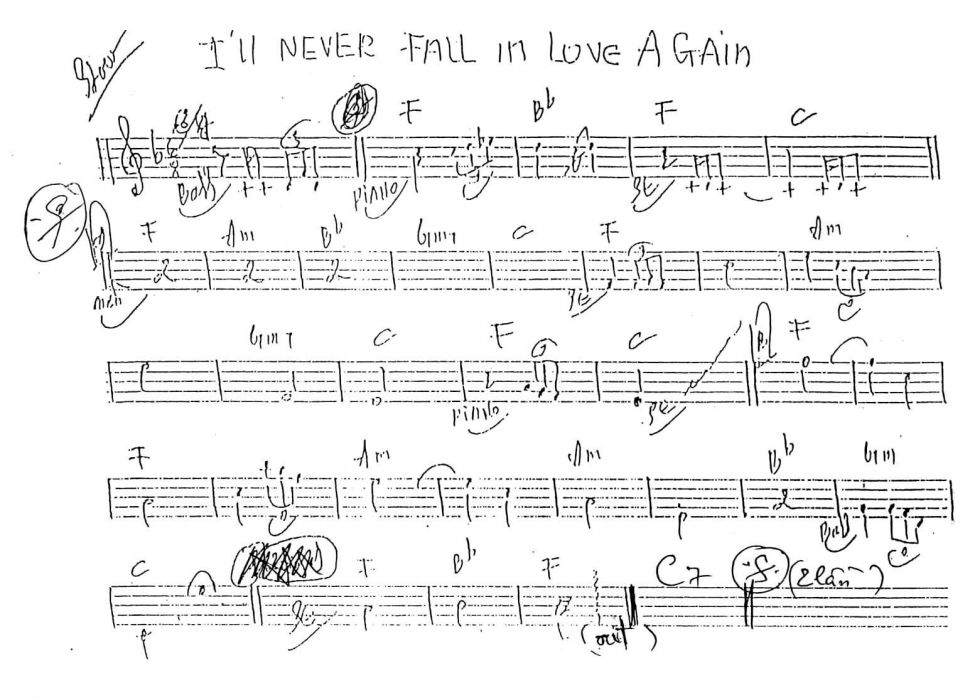 I'll NEVER FALL in LOVE AGAIN
Slow
F Bb F C
Bass
PiANO
F Am Bb Gm7 C F Am
Gm7 C F C F
PiANO
F Am Am Bb Gm
C F Bb F C7 (2 lần)
(out)